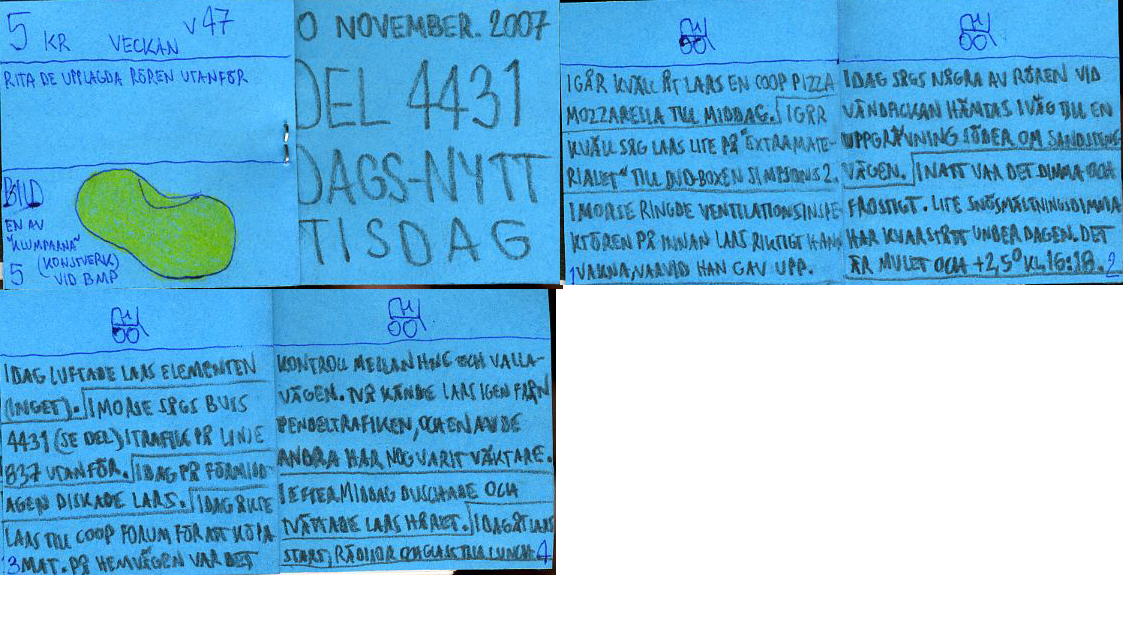 5 KR VECKAN V47
RITA DE UPPLAGDA RÖREN UTANFÖR
BILD
EN AV
"KLUMPARNA"
(KONSTVERK)
5 VID BMP
0 NOVEMBER. 2007
DEL 4431
DAGS-NYTT
TISDAG
IGÅR KVÄLL ÅT LARS EN COOP PIZZA
MOZZARELLA TILL MIDDAG. IGÅR
KVÄLL SÅG LARS LITE PÅ "EXTRAMATE-
RIALET" TILL DVD-BOXEN SIMPSONS 2.
IMORSE RINGDE VENTILATIONSINSPE-
KTÖREN PÅ INNAN LARS RIKTIGT HANN
1 VAKNA, VARVID HAN GAV UPP.
IDAG SÅGS NÅGRA AV RÖREN VID
VÄNDPLCKAN HÄMTAS IVÄG TILL EN
UPPGRÄVNING SÖDER OM SANDSJÖNS-
VÄGEN. INATT VAR DET DIMMA OCH
FROSTIGT. LITE SNÖSMÄLTNINGSDIMMA
HAR KVARSTÅTT UNDER DAGEN. DET
ÄR MULET OCH +2,5° KL 16:18. 2
IDAG LUFTADE LARS ELEMENTEN
(INGET). IMORSE SÅGS BUSS
4431 (SE DEL) I TRAFIK PÅ LINJE
837 UTANFÖR. IDAG PÅ FÖRMIDD-
AGEN DISKADE LARS. IDAG ÅKTE
LARS TILL COOP FORUM FÖR ATT KÖPA
3 MAT. PÅ HEMVÄGEN VAR DET
KONTROLL MELLAN HNC OCH VALLA-
VÄGEN. TVÅ KÄNDE LARS IGEN FRÅN
PENDELTRAFIKEN, OCH EN AV DE
ANDRA HAR NOG VARIT VÄKTARE.
I EFTERMIDDAG DUSCHADE OCH
TVÄTTADE LARS HÅRET. IDAG ÅT LARS
START, RÄDISOR OCH GLASS TILL LUNCH. 4